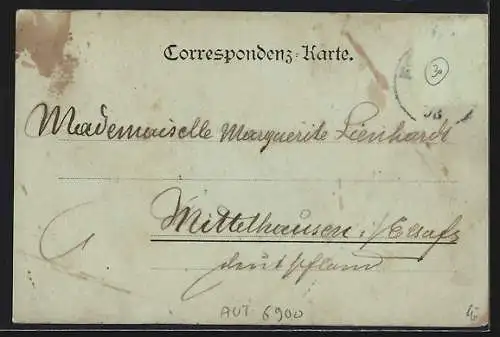 Correspondenz-Karte.
30
03
Mademoiselle Marguerite Lienhardt
Mittelhausen i/Elsaß
deutschland
AUT 6900